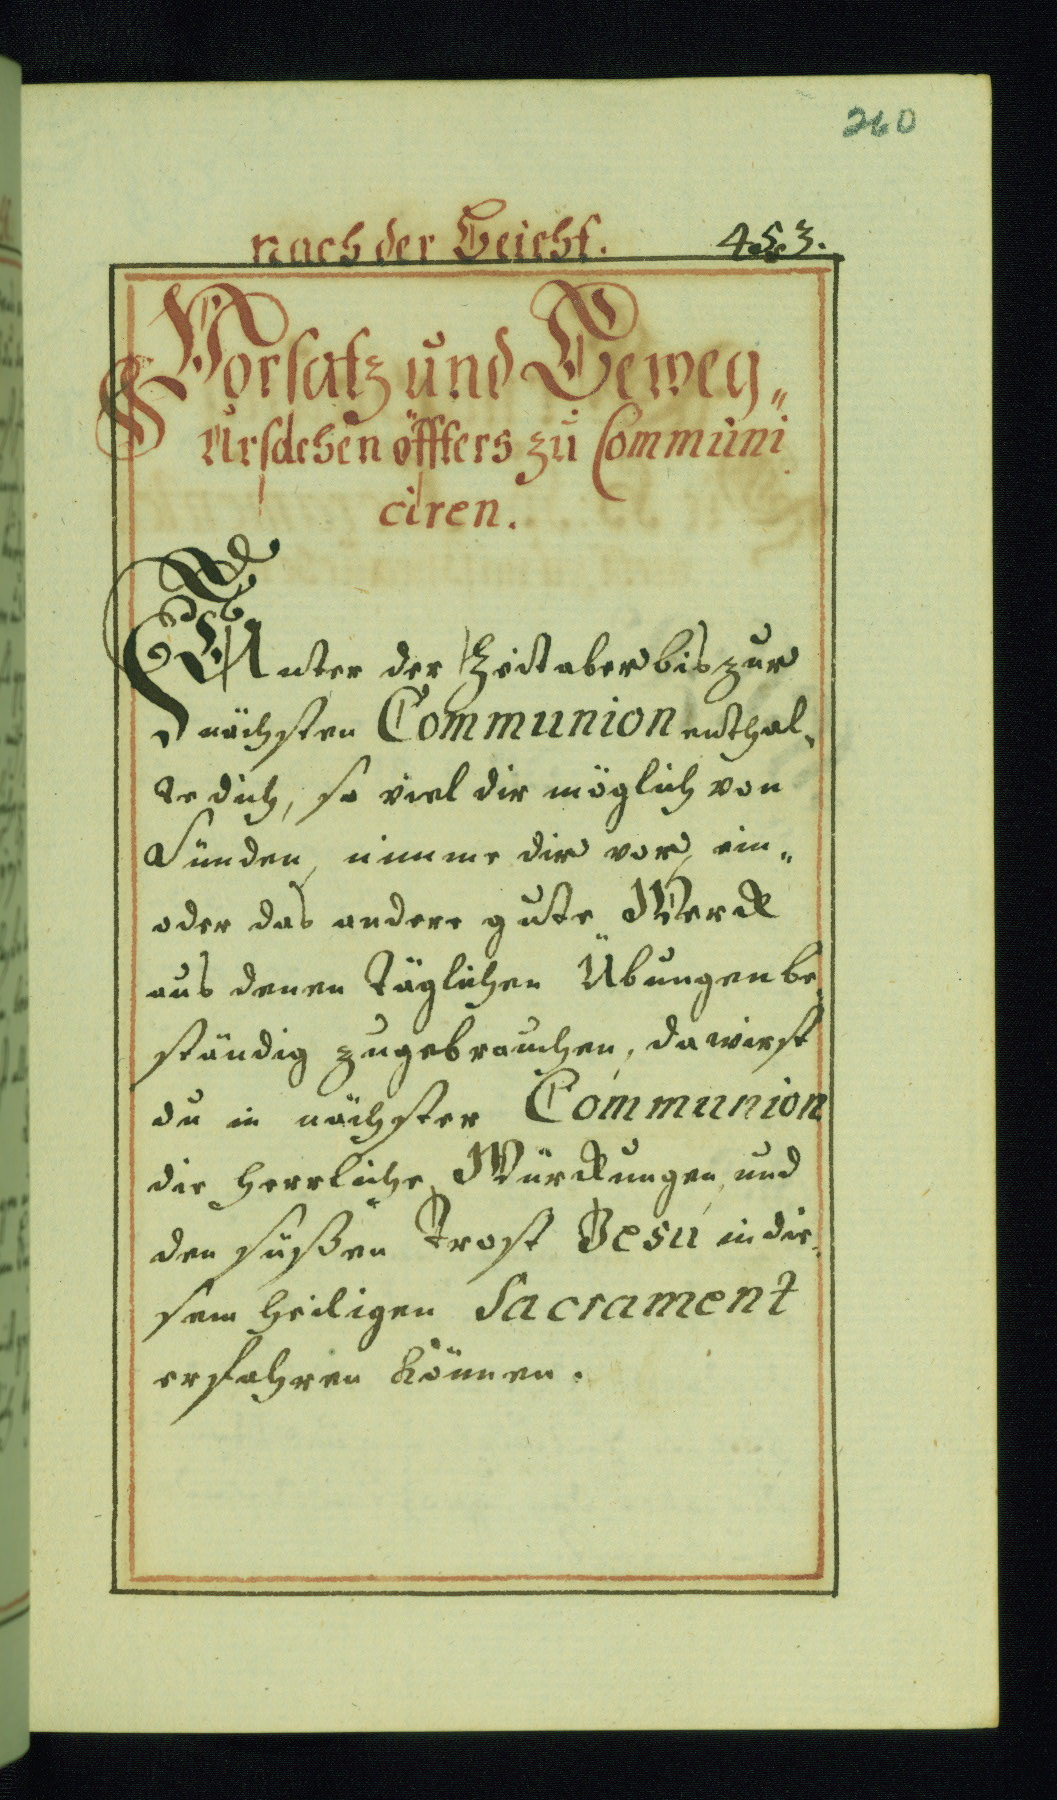 260
nach der Beicht. 453.
Vorsatz und Beweg„
Ursachen öffters zu Communi
ciren.
Unter der Zeit aber bis zur
nächsten Communion enthal„
te dich, so viel dir möglich von
Sünden, nimme dir vor, ein„
oder das andere gute Werck
aus denen täglichen Übungen be„
ständig zugebrauchen, da wirst
du in nächster Communion
die herrliche Würckungen, und
den süßen Trost Jesu in die„
sem heiligen Sacrament
erfahren können.